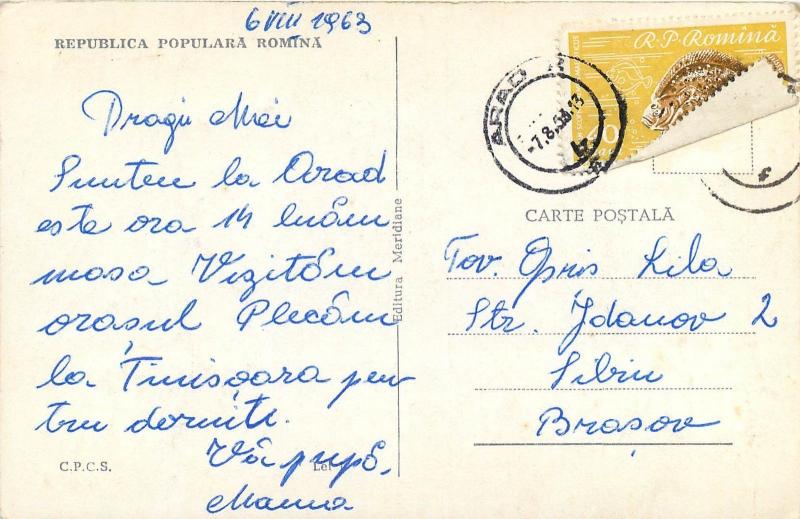 6 VIII 1963
REPUBLICA POPULARĂ ROMÎNĂ
Dragii Mei
Suntem la Arad
este ora 14 luăm
masa Vizităm
orașul Plecăm
la Timișoara pen
tru dormit.
Vă pupă,
Mama
C.P.C.S.
Lei
Editura Meridiane
R.P. Romînă
40
ARAD
-7.8.63.13
CARTE POȘTALĂ
Tov. Opris Lila
Str. Jdanov 2
Sibiu
Brașov